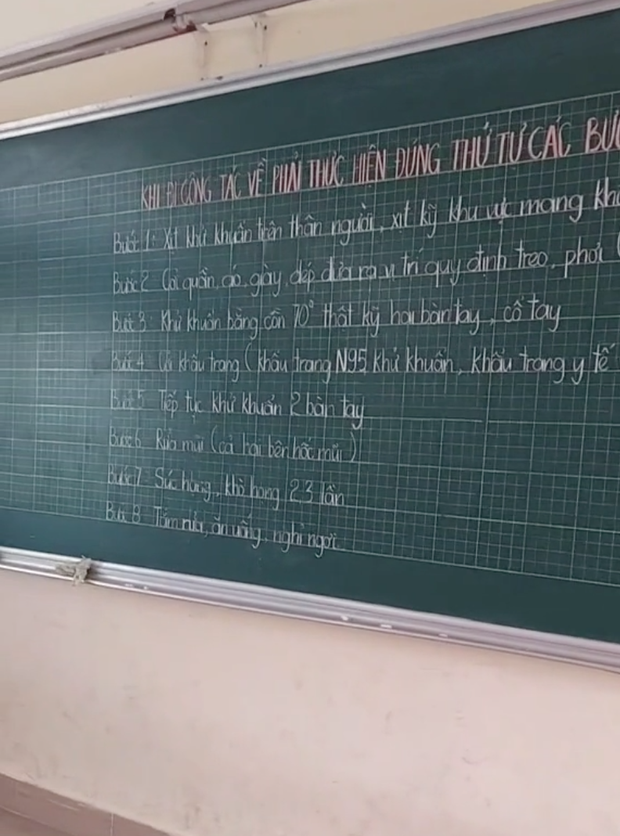 KHI ĐI CÔNG TÁC VỀ PHẢI THỰC HIỆN ĐÚNG THỨ TỰ CÁC BƯỚ
Bước 1: Xịt khử khuẩn trên thân người, xịt kỹ khu vực mang kh
Bước 2: Cởi quần, áo, giày, dép đưa ra vị trí quy định treo, phơi (
Bước 3: Khử khuẩn bằng cồn 70° thật kỹ hai bàn tay, cổ tay
Bước 4: khẩu trang (khẩu trang N95 khử khuẩn, khẩu trang y tế
Bước 5: Tiếp tục khử khuẩn 2 bàn tay
Bước 6: Rửa mũi (cả hai bên hốc mũi)
Bước 7: Súc họng, khò họng 2.3 lần
Bước 8: Tắm rửa, ăn uống, nghỉ ngơi.